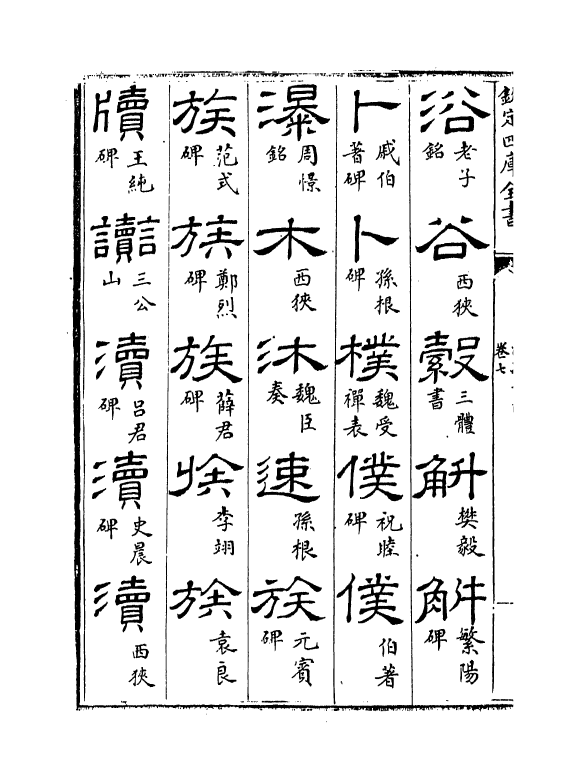 欽定四庫全書
卷七
浴 老子銘 谷 西狹 縠 三體書 斛 樊毅 斛 繁陽碑
卜 戚伯著碑 卜 孫根碑 樸 魏受禪表 僕 祝睦碑 僕 伯著
瀑 周憬銘 木 西狹 沐 魏臣奏 速 孫根 族 元賓碑
族 范式碑 族 鄭烈碑 族 薛君碑 族 李翊 族 袁良
牘 王純碑 讀 三公山 瀆 呂君碑 瀆 史晨碑 瀆 西狹